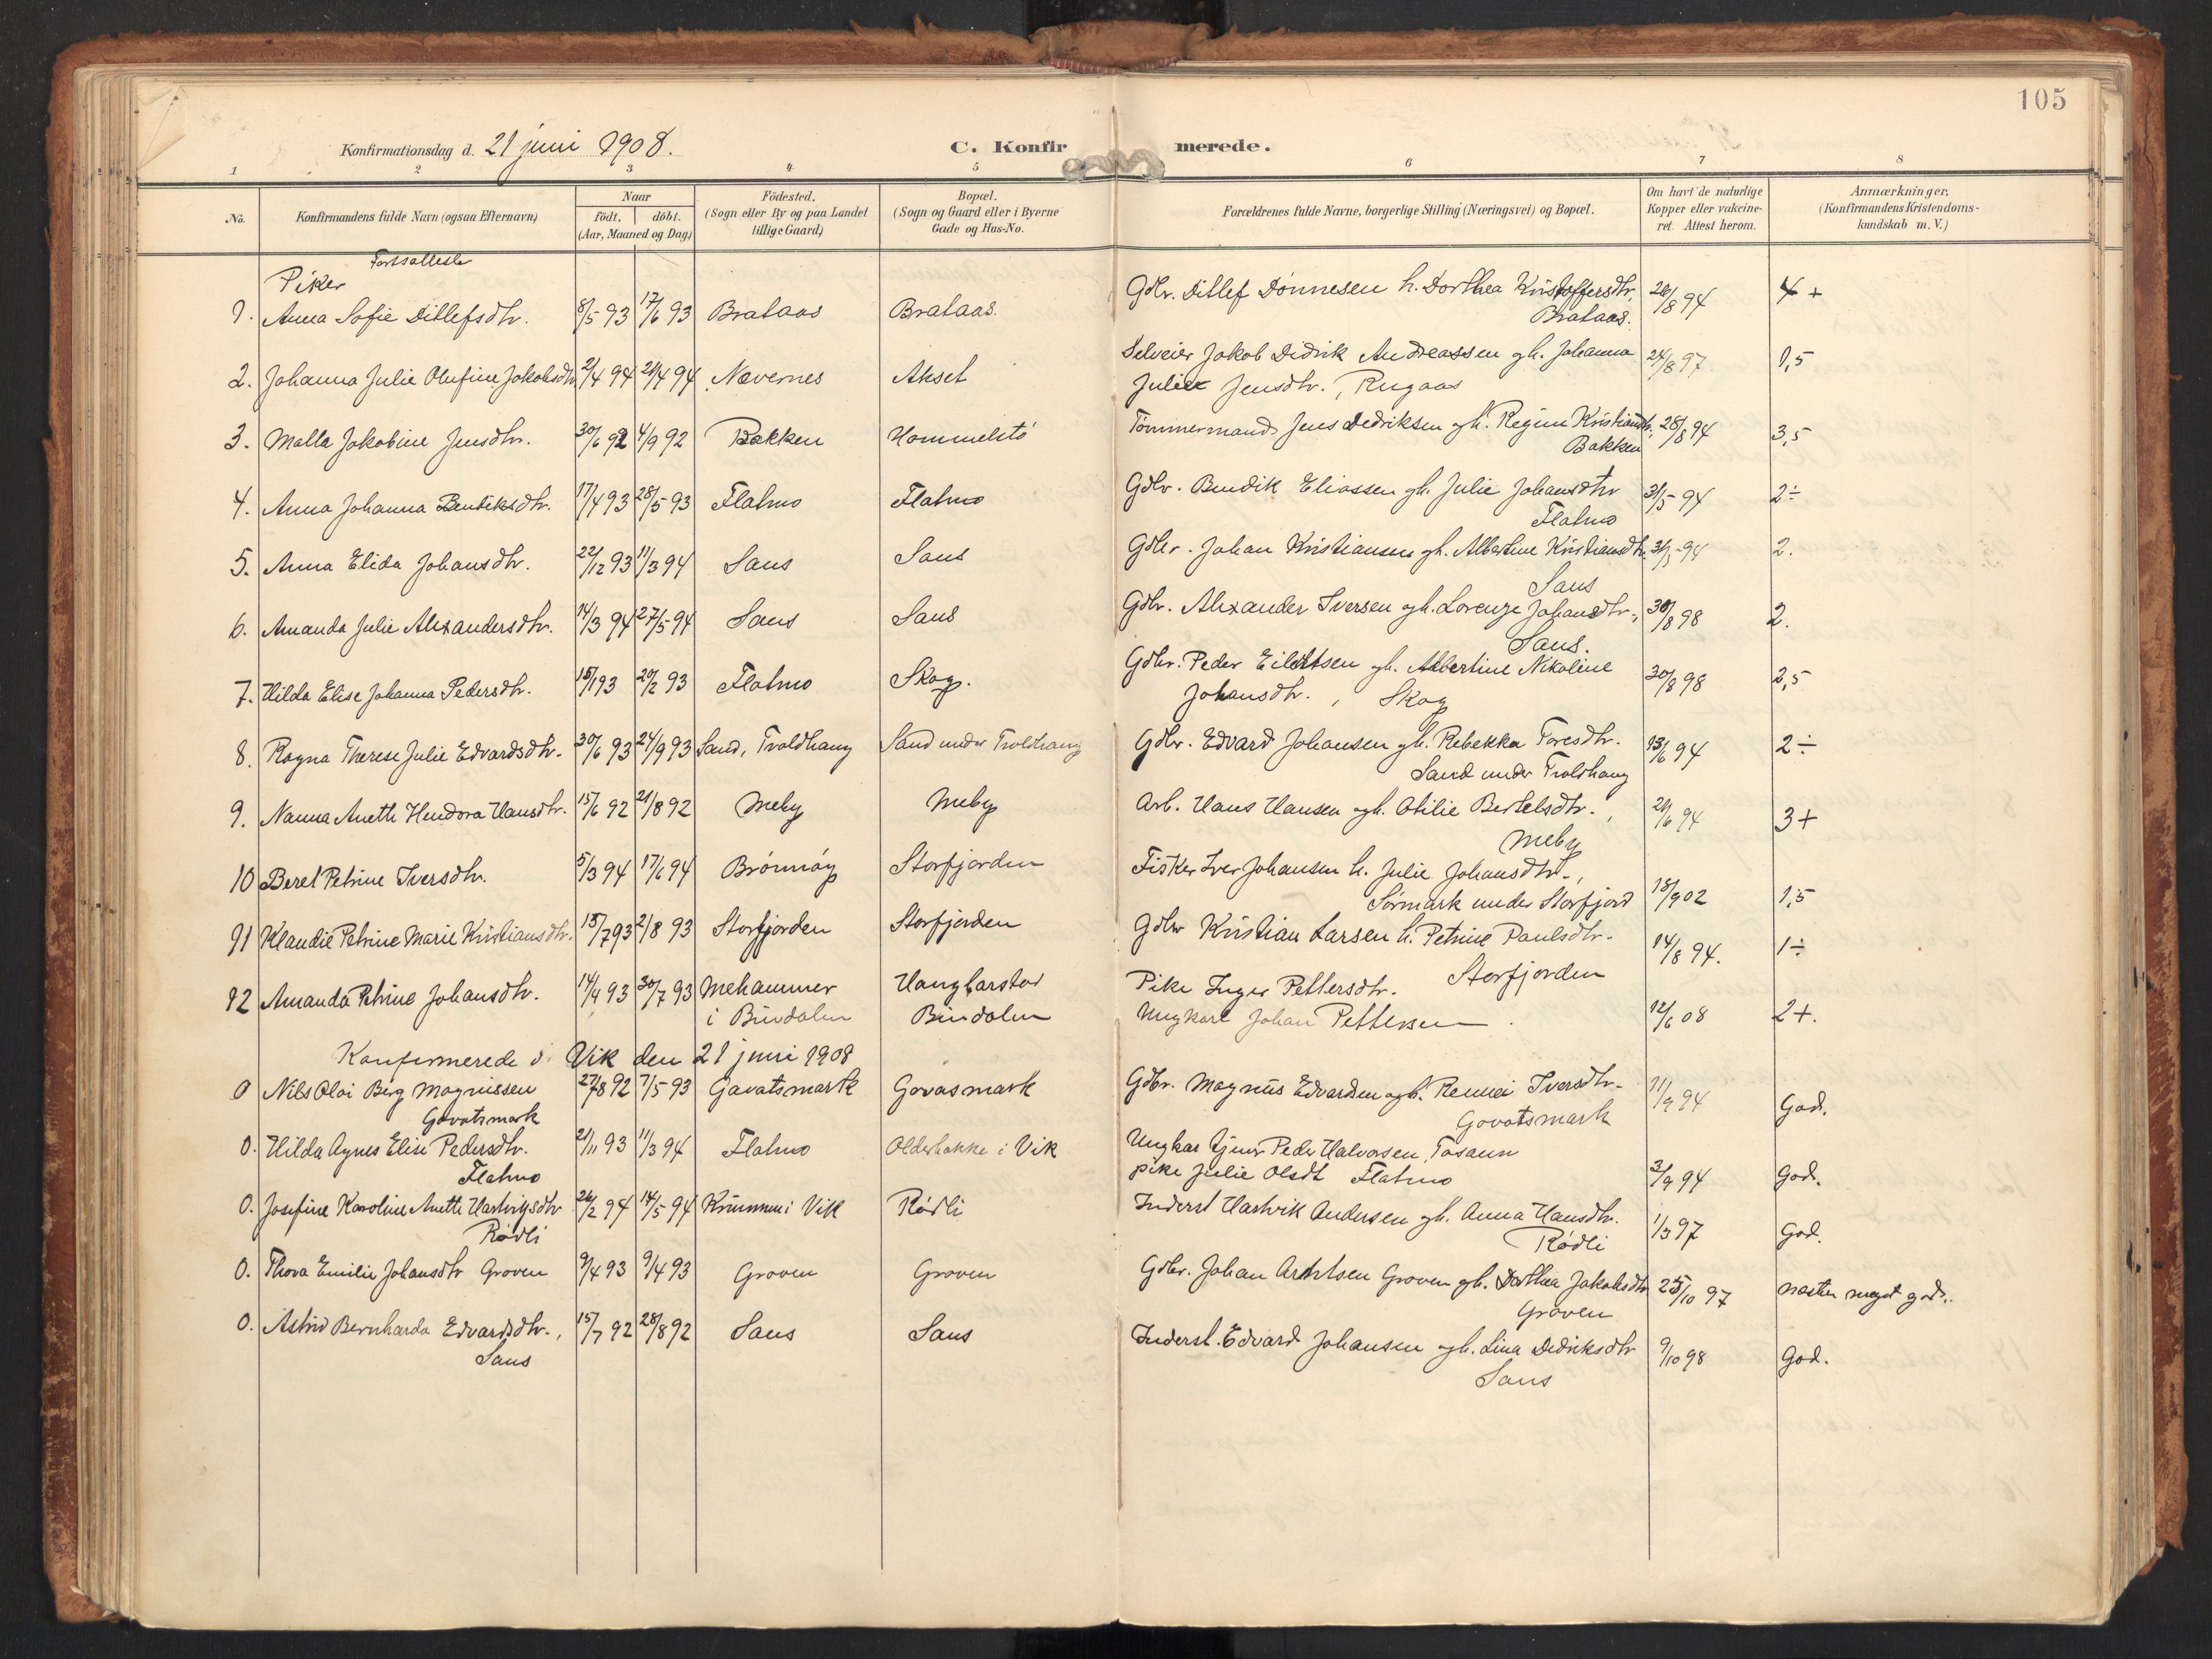 105
Konfirmationsdag d. 21 juni 1908.
C. Konfirmerede.
1 2 3 4 5 6 7 8
No. Konfirmandens fulde Navn (ogsaa Efternavn) Naar født. døbt. (Aar, Maaned og Dag) Fødested. (Sogn eller By og paa Landet tillige Gaard) Bopæl. (Sogn og Gaard eller i Byerne Gade og Hus-No. Forældrenes fulde Navne, borgerlige Stilling (Næringsvei) og Bopæl. Om havt de naturlige Kopper eller vakcineret. Attest herom. Anmærkninger. (Konfirmandens Kristendomskundskab m. V.)
Piker
1. Anna Sofie Ditlefsdtr. 8/5 93 17/6 93 Brataas Brataas. Gdbr. Ditlef Dønnesen h. Dorthea Kristoffersdtr, 26/8 94 4+
Brataas.
2. Johanna Julie Olufine Jakobsdtr 2/4 94 29/4 94 Nævernes Akset Selveier Jakob Didrik Andreassen gh. Johanna 24/8 97 1,5
Julie Jensdtr., Rugaas
3. Malla Jakobine Jensdtr. 30/6 92 4/9 92 Bakken Hommelstø Tømmermand Jens Dedriksen gh. Regine Kristiansdtr, 28/8 94 3,5
Bakken
4. Anna Johanna Bentiksdtr. 17/4 93 28/5 93 Flatmo Flatmo Gdbr. Bendik Eliassen gh. Julie Johansdtr 31/5 94 2÷
Flatmo
5. Anna Elida Johansdtr. 22/12 93 11/3 94 Saus Saus Gdbr. Johan Kristiansen gh. Albertine Kristiansdtr. 31/5 94 2.
Saus
6. Amanda Julie Alexandersdtr. 14/3 94 27/5 94 Saus Saus Gdbr. Alexander Iversen gh. Lorenze Johansdtr., 30/8 98 2.
Saus.
7. Hilda Elise Johanna Pedersdtr. 15/1 93 20/2 93 Flatmo Skog. Gdbr. Peder Eilertsen gh. Albertine Nikoline 30/8 98 2,5
Johansdtr., Skog
8. Ragna Therese Julie Edvardsdtr. 30/6 93 24/9 93 Sand, Troldhaug Sand under Troldhaug Gdbr. Edvard Johansen gh. Rebekka Toresdtr. 13/6 94 2÷
Sand under Troldhaug
9. Nanna Anette Hendora Hansdtr. 15/6 92 21/8 92 Meby Meby Arb. Hans Hansen gh. Otilie Bertelsdtr., 29/6 94 3+
Meby
10 Beret Petrine Iversdtr. 5/3 94 17/6 94 Brønnøy Storfjorden Fisker Iver Johansen h. Julie Johansdtr., 18/9 02 1,5
Sørmark under Storfjord
11 Klaudie Petrine Marie Kristiansdtr. 15/7 93 2/8 93 Storfjorden Storfjorden Gdbr Kristian Larsen h. Petrine Paulsdtr. 14/8 94. 1÷
Storfjorden
12 Amanda Petrine Johansdtr. 14/4 93 30/7 93 Mehammer Pike Inger Pettersdtr.
i Bindalen Bindalen Ungkarl Johan Pettersen 12/6 08 2+.
Konfirmerede i Vik den 21 juni 1908
0 Nils Olai Berg Magnussen 27/8 92 7/5 93 Gavatsmark Govasmark Gdbr. Magnus Edvardsen gh. Iversdtr. 11/9 94 God.
Govatsmark Govatsmark
0. Hilda Agnes Elise Pedersdtr. 21/11 93 11/3 94 Flatmo Olderbakke i Vik Ungkar tjener Peder Halvorsen
Flatmo pike Julie Olsdt Flatmo 3/9 94 God.
0. Josefine Karoline Anette Hartvigsdtr 26/2 94 14/5 94 Vik Rødli Inderst Hartvik Andersen gh. Anna Hansdtr. 1/3 97 God.
Rødli Rødli
0. Thora Emilie Johansdtr Groven 9/4 93 9/4 93 Groven Groven Gdbr. Johan Arntsen Groven gh. Dorthea Jakobsdtr 25/10 97 næsten meget god.
Groven
0. Astrid Bernharda Edvardsdtr., 15/7 92 28/8 92 Saus Saus Inderst. Edvard Johansen gh. Lina Dedriksdtr 9/10 98 God.
Saus Saus